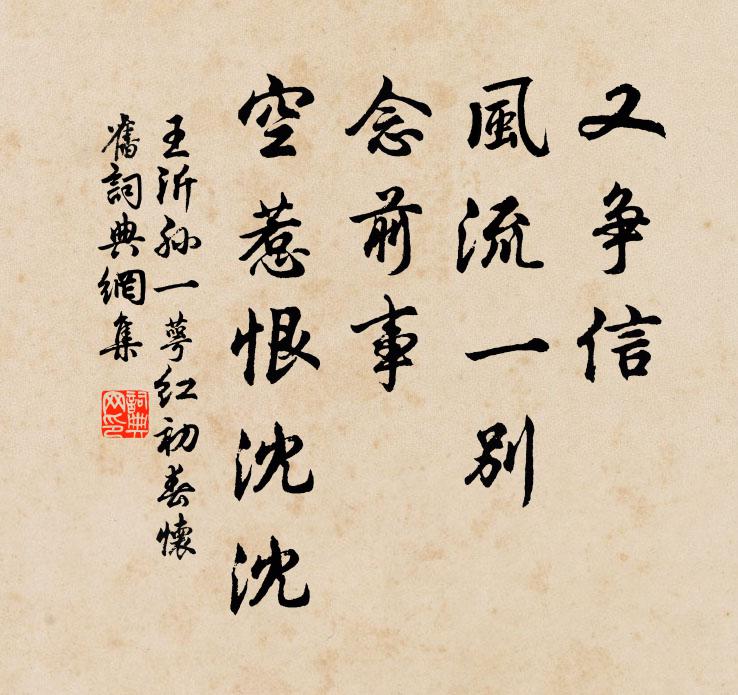 又争信
風流一別
念前事
空惹恨沈沈
王沂孙一萼红初春懷
舊詞典網集
詞典
网印